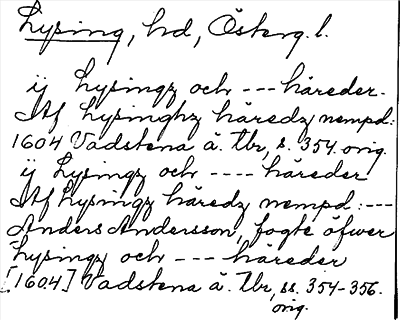 Lysing, hd, Österg.l.
ij Lysingz och --- häreder.
Af Lysinghz häredz nempd:
1604 Vadstena ä. tbr, s. 354. orig.
ij Lysingz och ---- häreder
Af Lysingz häredz nempd: ---
Anders Andersson, fogte öfwer
Lysingz och --- häreder
[1604] Vadstena ä. tbr, ss. 354-356.
orig.